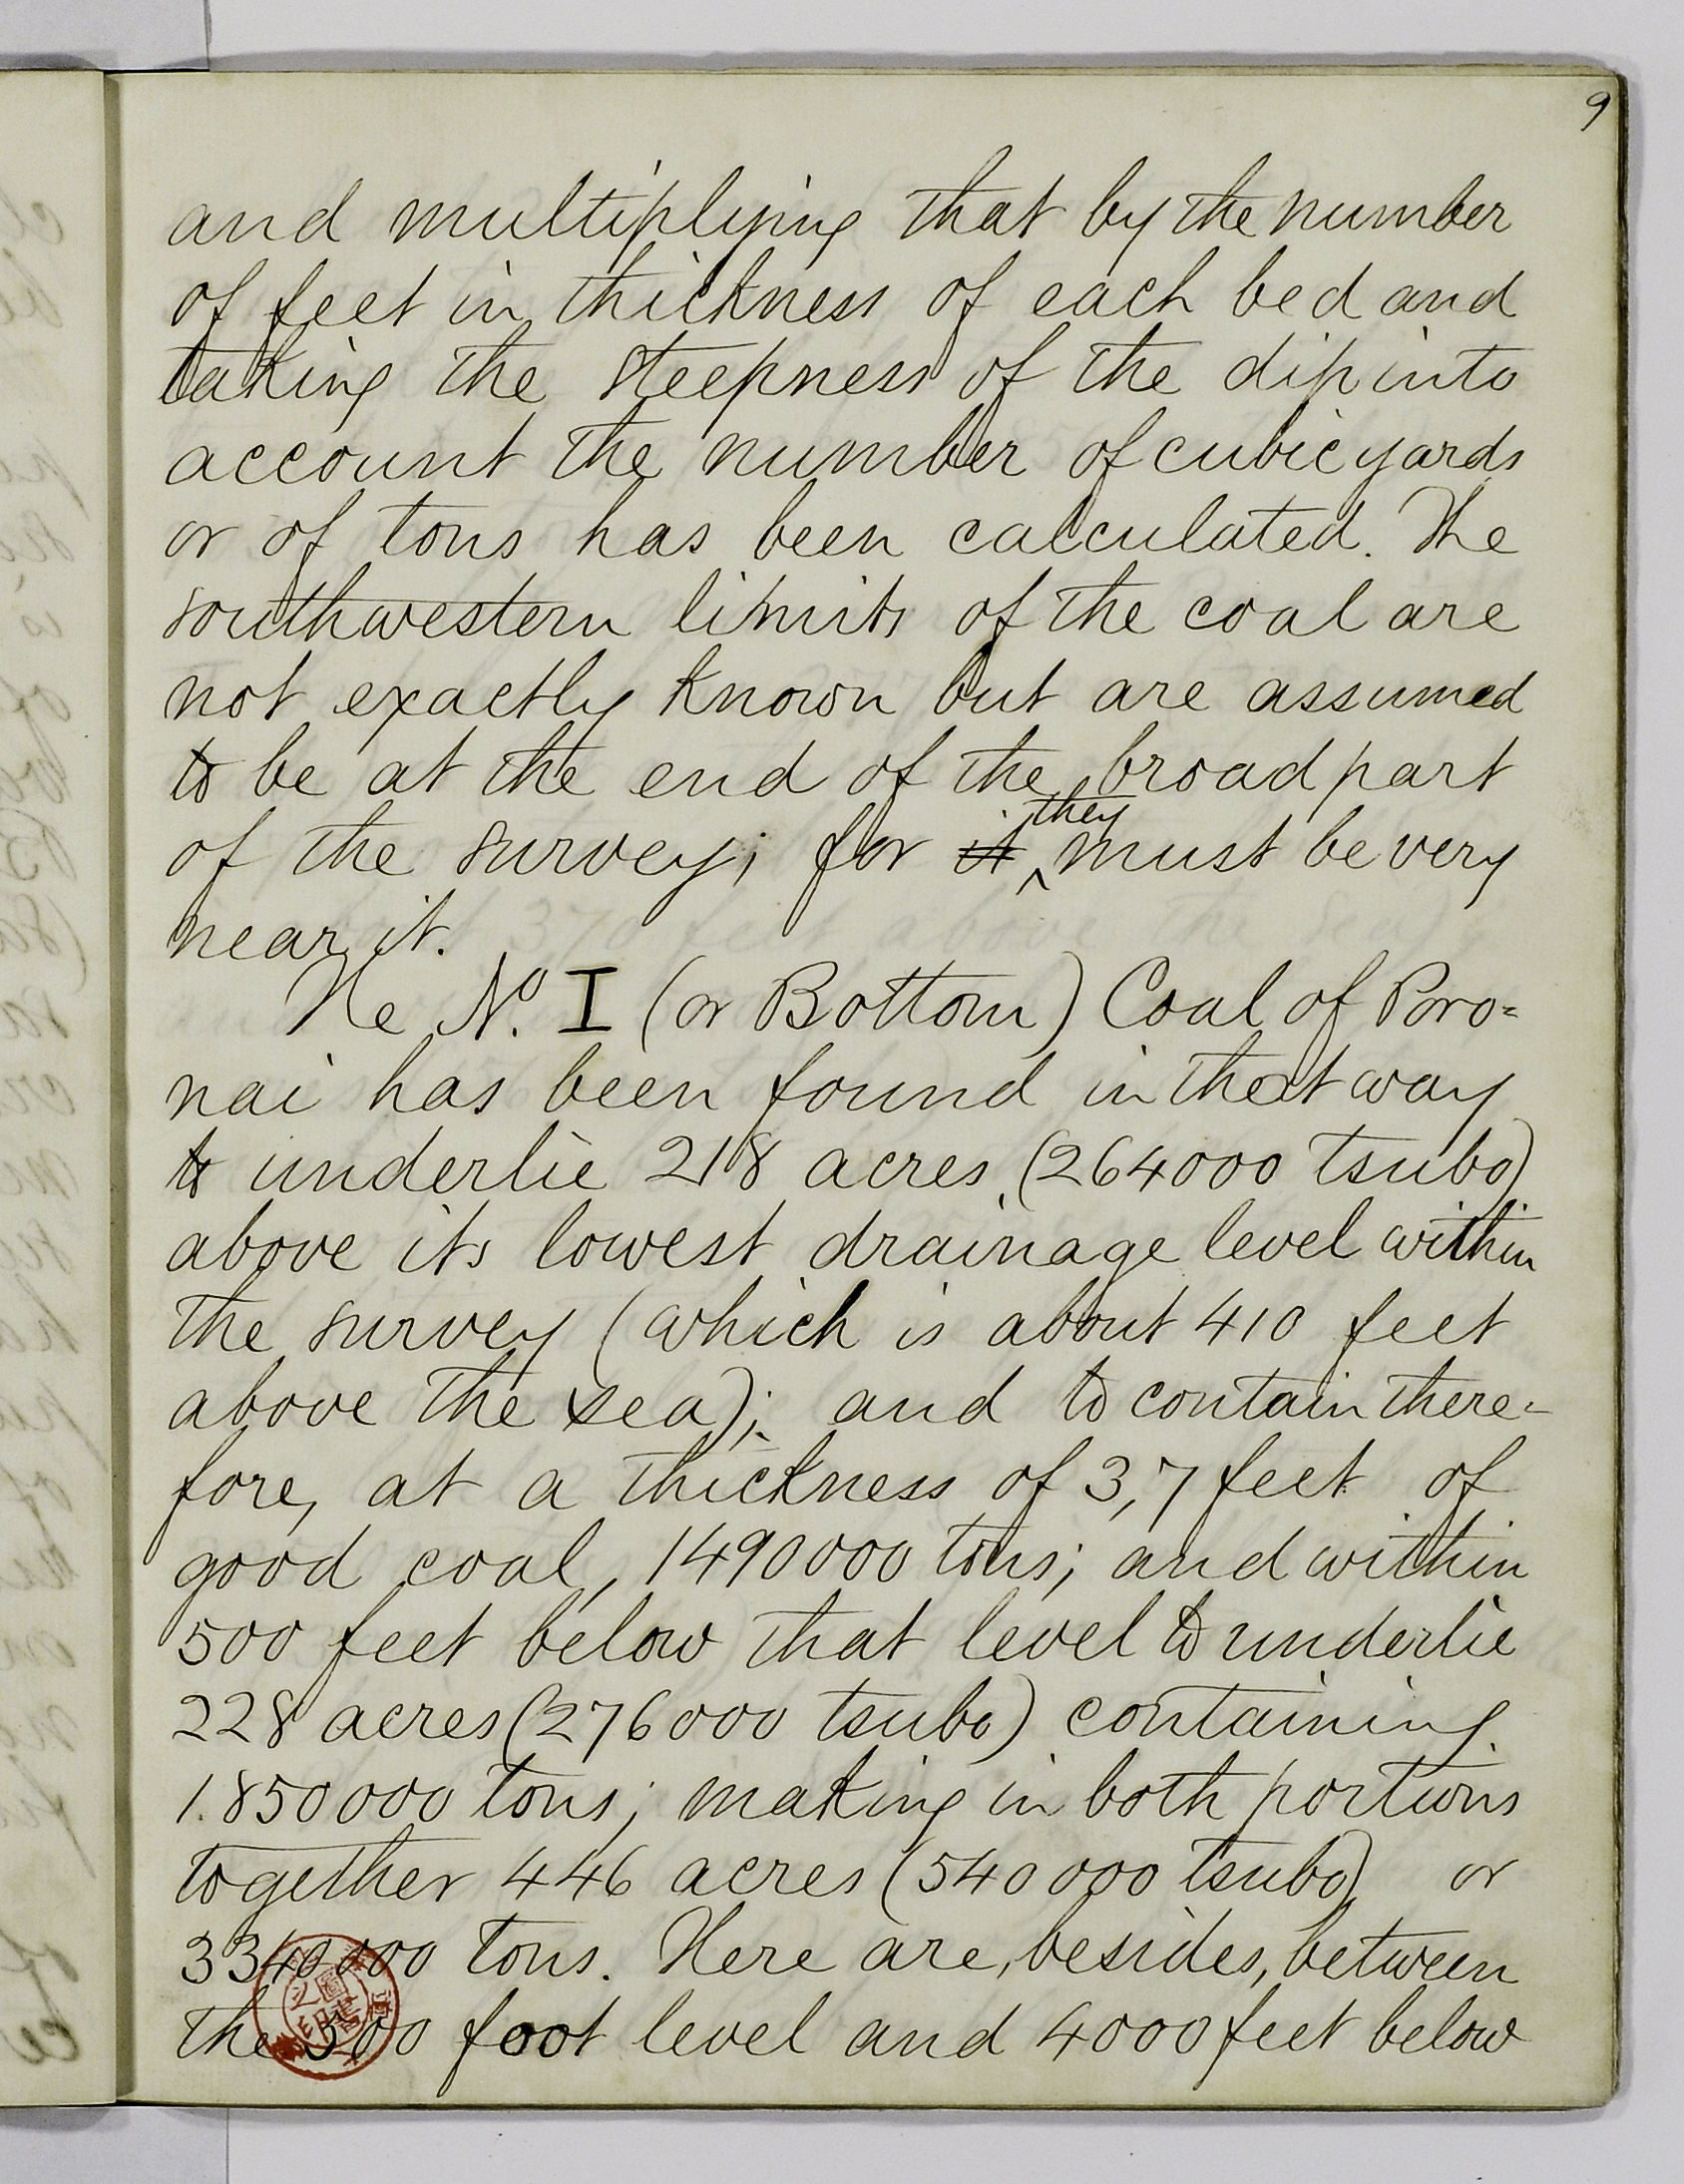 9
and multiplying that by the number
of feet in thickness of each bed and
taking the steepness of the dip into
account the number of cubic yards
or of tons has been calculated. The
southwestern limits of the coal are
not exactly known but are assumed
to be at the end of the broad part
of the survey; for it they must be very
near it.
The No. I (or Bottom) Coal of Poro=
nai has been found in that way
to underlie 218 acres, (264000 tsubo)
above its lowest drainage level within
the survey (which is about 410 feet
above the sea); and to contain there-
fore, at a thickness of 3,7 feet of
good coal, 1490000 tons; and within
500 feet below that level to underlie
228 acres (276000 tsubo) containing
1.850000 tons; making in both portions
together 446 acres (540000 tsubo) or
3340000 tons. Here are, besides, between
the 500 foot level and 4000 feet below